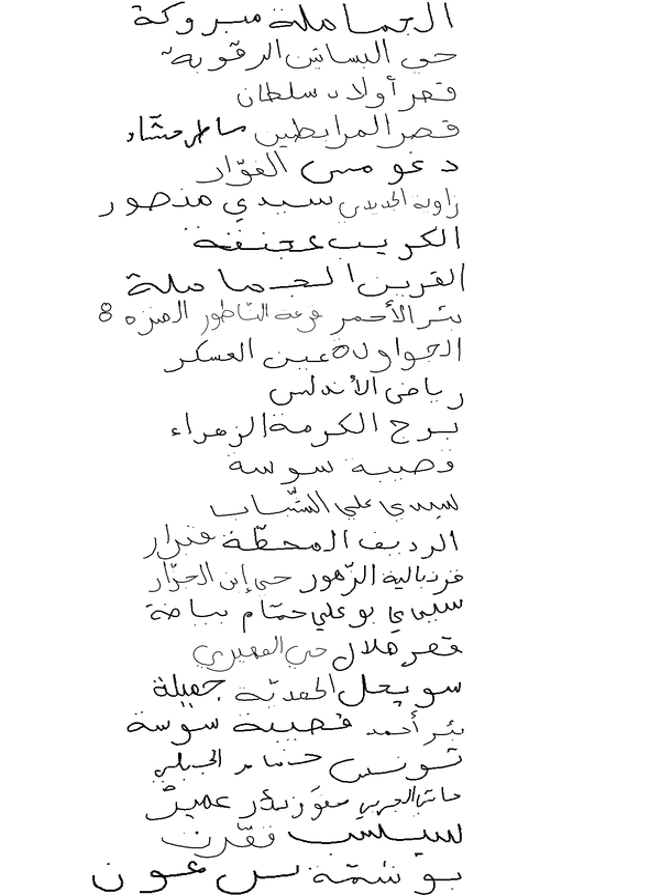 الجماملة مبروكة
حي البساتين الرقوبة
قصر أولاد سلطان
قصر المرابطين ساطر مشّاء
دغومس الفوّار
زاوية الجديدي سيدي منصور
الكريب عجنقة
القرين الجماملة
بئر الأحمر قرعة الناطور المنزه 8
الحواولة عين العسكر
رياض الأندلس
برج الكرمة الزهراء
قصيبة سوسة
سيدي علي الشبّاب
الرديف المحطّة
قرنبالية الزّهور حي إبن الجزّار
سيدي بو علي حمّام بياضة
قصر هلال حي القصيري
سويحل الحمديّة جميلة
بئر أحمد قصيبة سوسة
تونس
سلسب فقّرت
بوشمّة